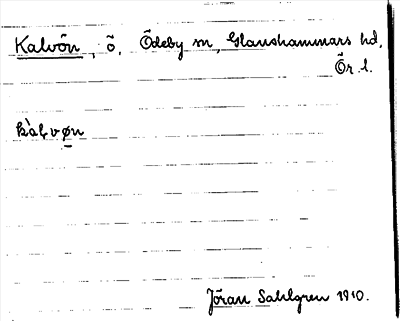 Kalvön, ö, Ödeby sn, Glanshammars hd,
Ör. l.
kàlvøn
Jöran Sahlgren 1910.